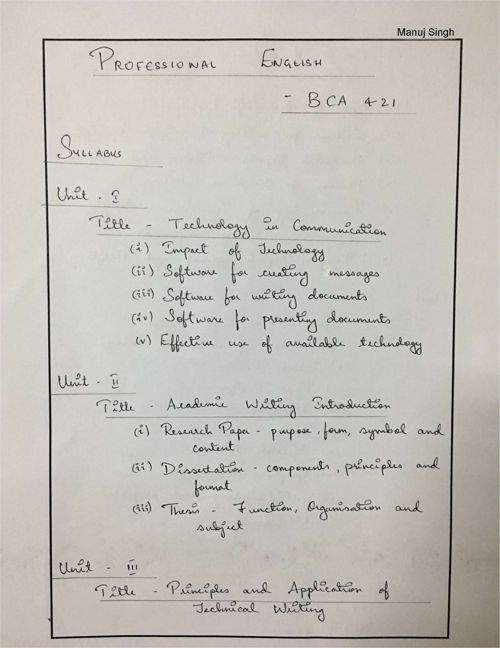 Manuj Singh
PROFESSIONAL ENGLISH
- BCA 421
SYLLABUS
Unit - I
Title - Technology in Communication
(i) Impact of Technology
(ii) Software for creating messages
(iii) Software for writing documents
(iv) Software for presenting documents
(v) Effective use of available technology
Unit - II
Title - Academic Writing Introduction
(i) Research Paper - purpose, form, symbol and
content
(ii) Dissertation - components, principles and
format
(iii) Thesis - Function, Organisation and
subject
Unit - III
Title - Principles and Application of
Technical Writing